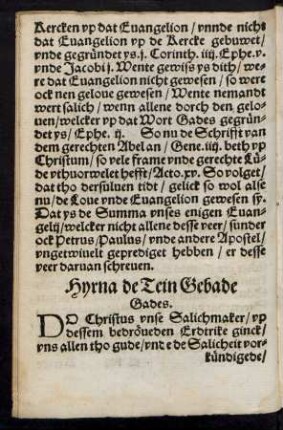 Kercken vp dat Euangelion / vnnde nicht
dat Euangelion vp de Kercke gebuwet /
vnde gegründet ys. j. Corinth. iiij. Ephe. v.
vnde Jacobi j. Wente gewiss ys dith / we-
re dat Euangelion nicht gewesen / so were
ock nen geloue gewesen / Wente nemandt
wert salich / wenn allene dorch den gelo-
uen / welcker vp dat Wort Gades gegrün-
det ys / Ephe. ij. So nu de Schrifft van
dem gerechten Abel an / Gene. iiij. beth vp
Christum / so vele frame vnde gerechte Lü-
de vthuorwelet hefft / Acto. xv. So volget /
dat tho dersuluen tidt / gelick so wol alse
nu / de Loue vnde Euangelion gewesen sy.
Dat ys de Summa vnses enigen Euan-
gelij / welcker nicht allene desse veer / sunder
ock Petrus / Paulus / vnde andere Apostel /
vngetwiuelt geprediget hebben / er desse
veer daruan schreuen.
Hyrna de Tein Gebade
Gades.
DO Christus vnse Salichmaker / vp
dessem bedröueden Erdtrike ginck /
vns allen tho gude / vnde de Salicheit vor-
kündigede /